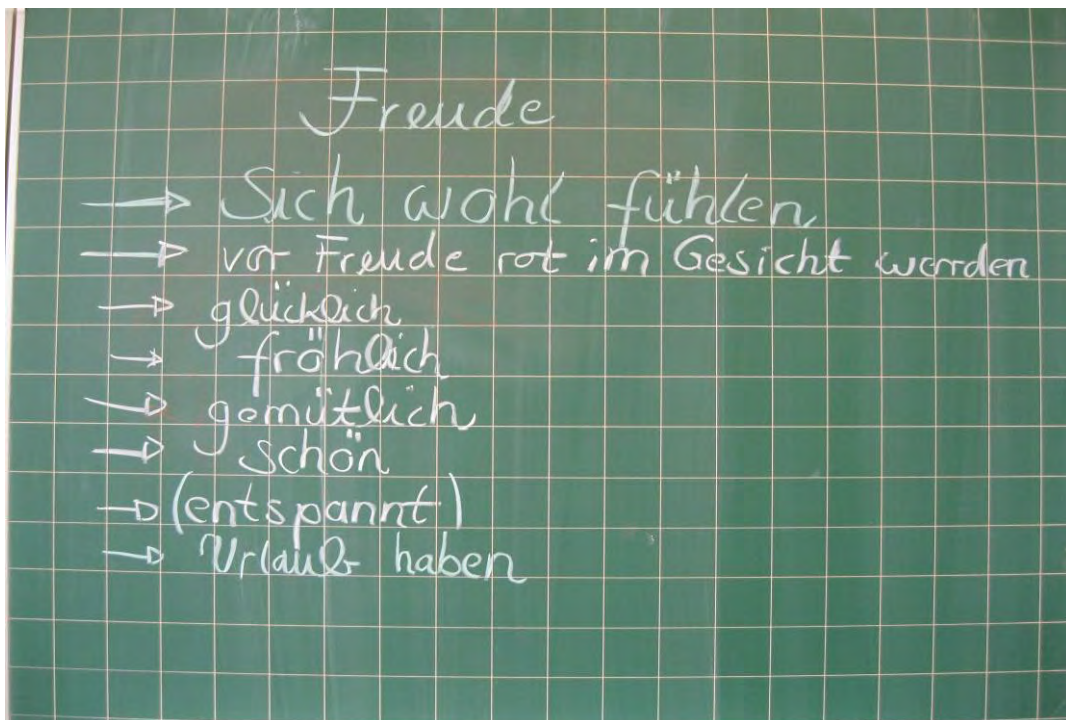 Freude
→ Sich wohl fühlen
→ vor Freude rot im Gesicht werden
→ glücklich
→ fröhlich
→ gemütlich
→ schön
→ (entspannt)
→ Urlaub haben